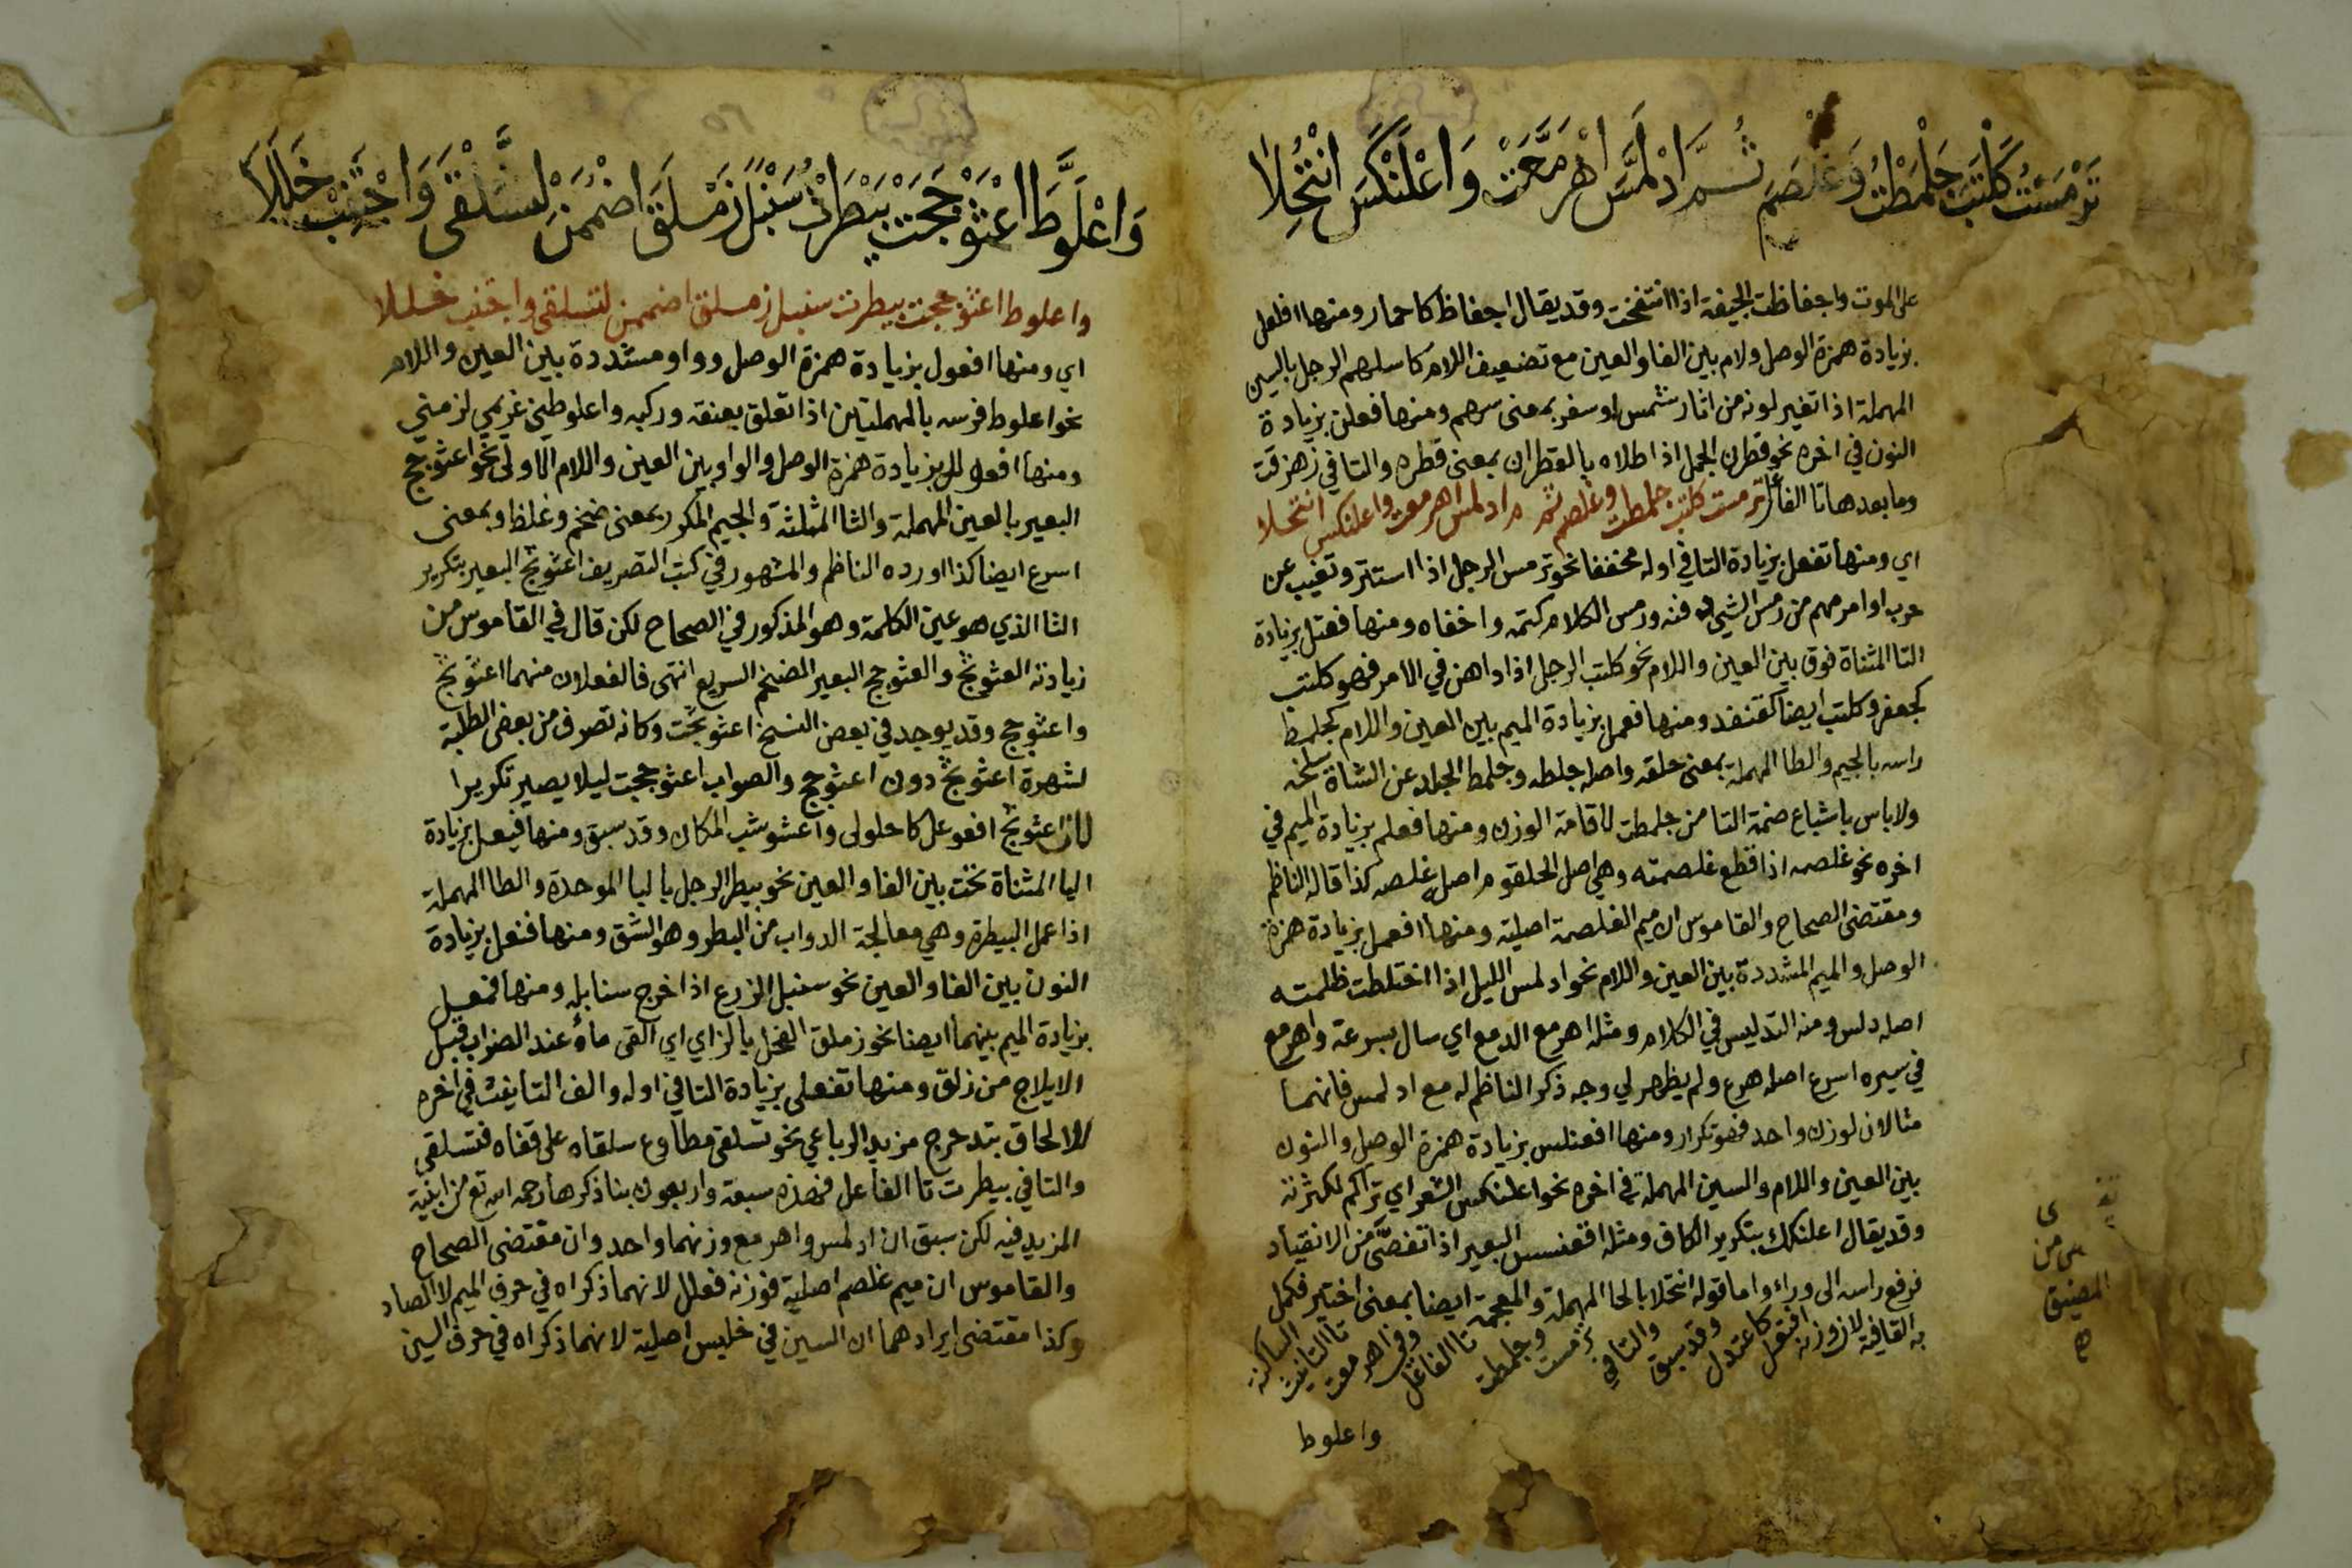 تَرْمَسْتُ كَلْتَبَ جَلْمَطْتُ وَغَلْصَمَ ثُمَّ ادْلَمَّسَ اهْرَمَّعَتْ وَاعْلَنْكَسَ انْتُخِلَا
على الموت واجفاظت الجيفة اذا انتفخت وقد يقال اجفاظ كاحمار ومنها افلعل
بزيادة همزة الوصل ولام بين الفا والعين مع تضعيف اللام كاسلهم الرجل بالسين
المهملة اذا تغير لونه من اثار شمس او سفر بمعنى سهم ومنها فعلن بزيادة
النون في اخره نحو قطرن الجمل اذا اطلاه بالقطران بمعنى قطره والتا في زهزقت
وما بعدها تا الفاعل ترمست كلتب جلمطت وغلصم ثم ادلمس اهرمعت واعلنكس انتخلا
اي ومنها تفعل بزيادة التا في اوله مخففا نحو ترمس الرجل اذا استتر وتغيب عن
حرب او امر مهم من رمس الشي دفنه ورمس الكلام كتمه واخفاه ومنها فعتل بزيادة
التا المثناة فوق بين العين واللام نحو كلتب الرجل اذا داهن في الامر فهو كلتب
كجعفر وكلتب ايضا كقنفذ ومنها فعمل بزيادة الميم بين العين واللام كجلمط
راسه بالجيم والطا المهملة بمعنى حلقه واصله جلطه وجلمط الجلد عن الشاة سلخه
ولا باس باشباع ضمة التا من جلمطت لاقامة الوزن ومنها فعلم بزيادة الميم في
اخره نحو غلصمه اذا قطع غلصمته وهي اصل الحلقوم اصله غلصه كذا قاله الناظم
ومقتضى الصحاح والقاموس ان ميم الغلصمة اصلية ومنها افعمل بزيادة همزة
الوصل والميم المشددة بين العين واللام نحو ادلمس الليل اذا اختلطت ظلمته
اصله دلس ومنه التدليس في الكلام ومثله اهرمع الدمع اي سال بسرعة واهرمع
في سيره اسرع اصله هرع ولم يظهر لي وجه ذكر الناظم له مع ادلمس فانهما
مثالان لوزن واحد فهو تكرار ومنها افعنلس بزيادة همزة الوصل والنون
بين العين واللام والسين المهملة في اخره نحو اعلنكس الشعر اي تراكم لكثرته
وقد يقال اعلنكك بتكرير الكاف ومثله اقعنسس البعير اذا تعصى من الانقياد
فرفع راسه الى وراء واما قوله انتخلا بالحا المهملة والمعجمة ايضا بمعنى اختير فكمل
به القافية لان وزنه افتعل كاعتدل وقد سبق والتا في ترمست وجلمطت تا الفاعل وفي اهرمعت تا التانيث الساكنة
واعلوط
من
المضيق
وَاعْلَوَّطَ اعْثَوْجَجَتْ بَيْطَرْتُ سَنْبَلَ زَمْلَقَ اضْمُمَنْ لِتَسَلْقَى وَاجْتَنِبْ خَلَلَا
واعلوط اعثوججت بيطرت سنبل زملق اضممن لتسلقى واجتنب خللا
اي ومنها افعول بزيادة همزة الوصل وواو مشددة بين العين واللام
نحو اعلوط فرسه بالمهملتين اذا تعلق بعنقه وركبه واعلوطني غريمي لزمني
ومنها افعولل بزيادة همزة الوصل والواو بين العين واللام الاولى نحو اعثوجج
البعير بالعين المهملة والثا المثلثة والجيم المكرر بمعنى ضخم وغلظ وبمعنى
اسرع ايضا كذا اورده الناظم والمشهور في كتب التصريف اعثوثج البعير بتكرير
الثا الذي هو عين الكلمة وهو المذكور في الصحاح لكن قال في القاموس من
زيادته العثوثج والعثوجج البعير الضخم السريع انتهى فالفعلان منهما اعثوثج
واعثوجج وقد يوجد في بعض النسخ اعثوثجت وكانه تصرف من بعض الطلبة
لشهرة اعثوثج دون اعثوجج والصواب اعثوججت ليلا يصير تكريرا
لان اعثوثج افعوعل كاحلولى واعشوشب المكان وقد سبق ومنها فيعل بزيادة
اليا المثناة تحت بين الفا والعين نحو بيطر الرجل بالبا الموحدة والطا المهملة
اذا عمل البيطرة وهي معالجة الدواب من البطر وهو الشق ومنها فنعل بزيادة
النون بين الفا والعين نحو سنبل الزرع اذا اخرج سنابله ومنها فمعل
بزيادة الميم بينهما ايضا نحو زملق الفحل بالزاي اي القى ماؤه عند الضراب قبل
الايلاج من زلق ومنها تفعلى بزيادة التا في اوله والف التانيث في اخره
للالحاق بتدحرج مزيد الرباعي نحو تسلقى مطاوع سلقاه على قفاه فتسلقى
والتا في بيطرت تا الفاعل فهذه سبعة واربعون بنا ذكرها رحمه الله تع من ابنية
المزيد فيه لكن سبق ان ادلمس واهرمع وزنهما واحد وان مقتضى الصحاح
والقاموس ان ميم غلصم اصلية فوزنه فعلل لانهما ذكراه في حرف الميم لا الصاد
وكذا مقتضى ايرادهما ان السين في خلبس اصلية لانهما ذكراه في حرف السين